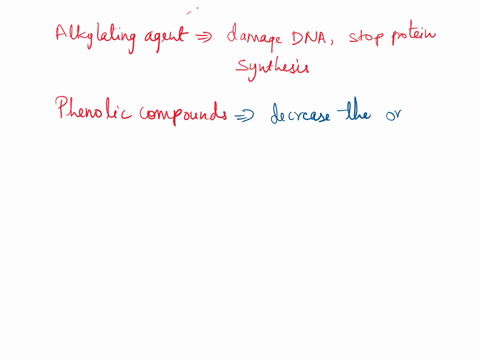 Alkylating agent ⇒ damage DNA, stop protein
synthesis
Phenolic compounds ⇒ decrease the or